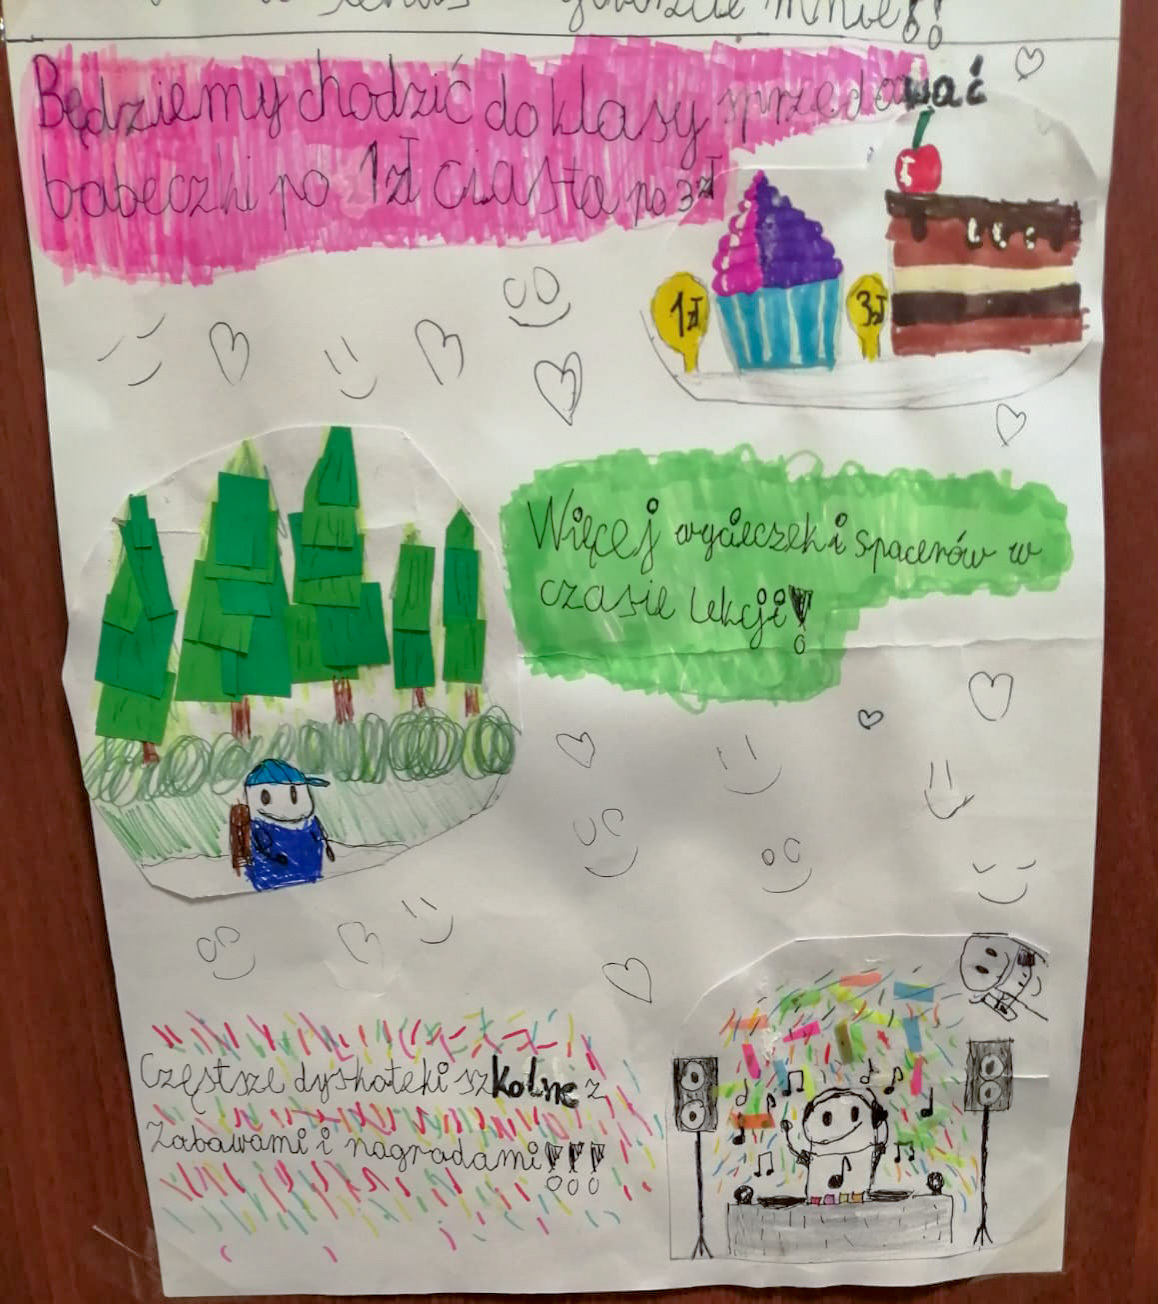 mnie!!
Będziemy chodzić do klasy sprzedawać
babeczki po 1zł ciasta po 3zł
1zł
3zł
Więcej wycieczek i spacerów w
czasie lekcji!
Częstsze dyskoteki szkolne z
Zabawami i nagradami!!!